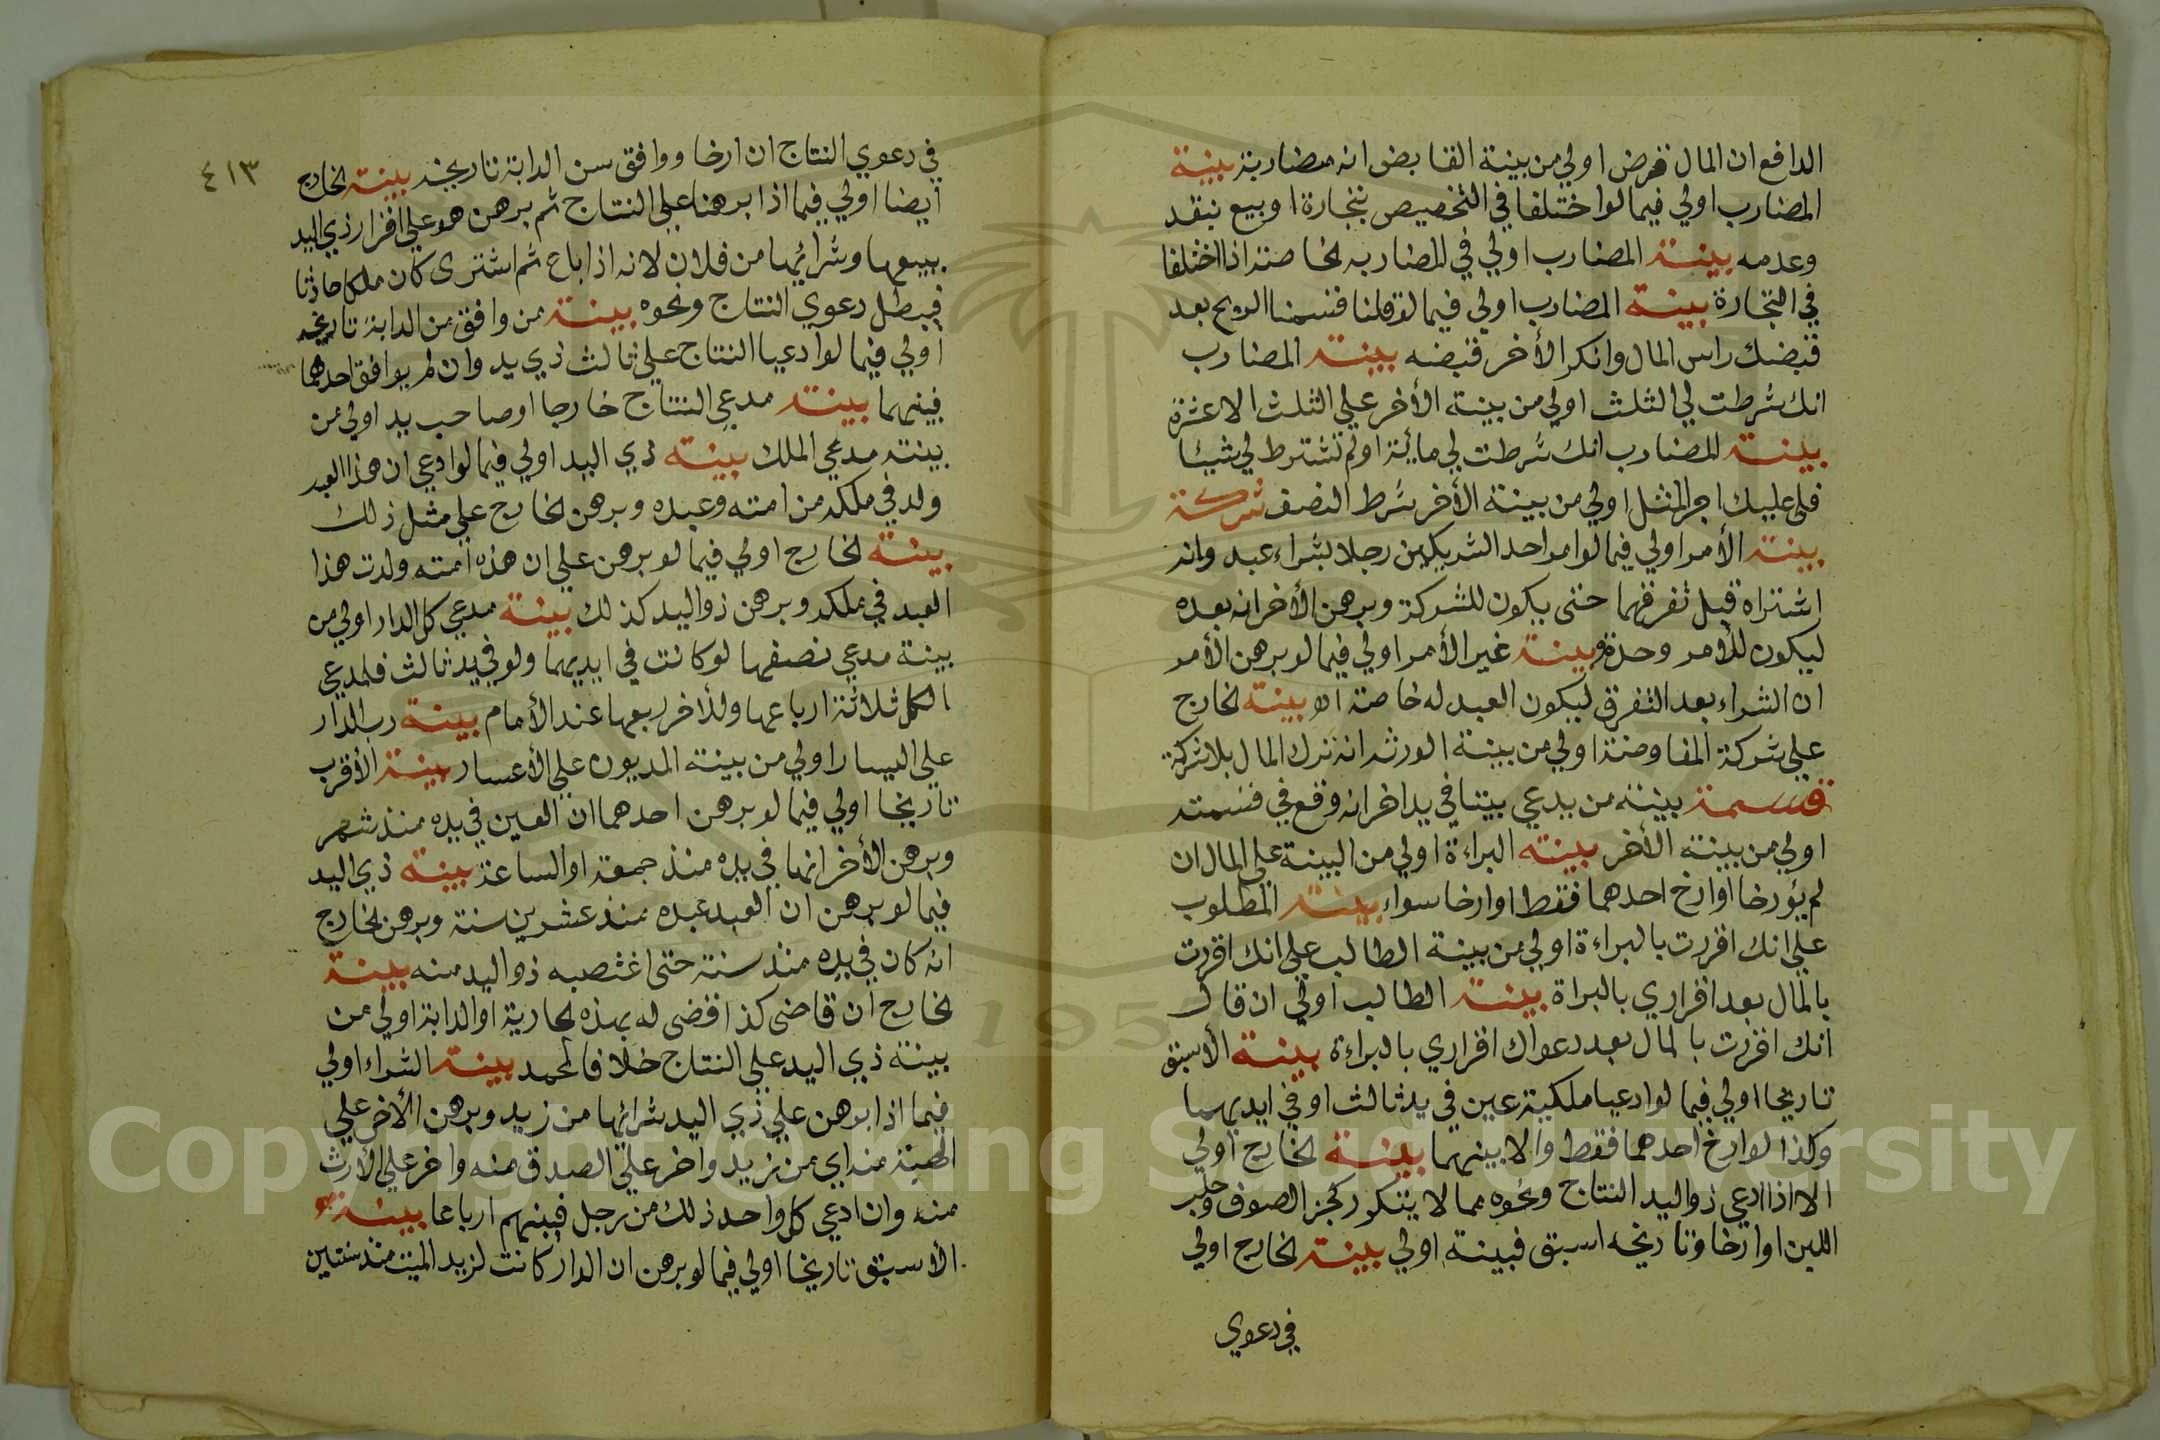 الدافع ان المال قرض اولي من بينة القابض انه مضاربة بينة
المضارب اولي فيما لو اختلفا في التخصيص بتجارة او بيع بنقد
وعدمه بينة المضارب اولي في المضاربه الخاصة اذا اختلفا
في التجارة بينة المضارب اولي فيما لو قلنا قسمنا الربح بعد
قبضك راس المال وانكر الأخر قبضه بينة المضارب
انك شرطت لي الثلث اولي من بينة الأخر علي الثلث الا عشرة
بينة المضارب انك شرطت لي مائة او لم تشترط لي شيئا
فلي عليك اجر المثل اولي من بينة الأخر شرط النصف شركة
بينة الأمر اولي فيما لو امر احد الشريكين رجلا بشراء عبد وانه
اشتراه قبل تفرقهما حتى يكون للشركة وبرهن الأخر انه بعده
ليكون للأمر وحده وبينة غير الأمر اولي فيما لو برهن الأمر
ان الشراء بعد التفرق ليكون العبد له خاصة اه بينة الخارج
علي شركة المفاوضة اولي من بينة الورثه انه ترك المال بلا شركة
قسمة بينة من يدعي بيتا في يد اخر انه وقع في قسمته
اولي من بينة الأخر بينة البراءة اولي من البينة علي المال ان
لم يؤرخا او ارخ احدهما فقط او ارخا سواء بينة المطلوب
علي انك اقررت بالبراءة اولي من بينة الطالب علي انك اقررت
بالمال بعد اقراري بالبراة بينة الطالب اولي ان قال
انك اقررت بالمال بعد دعواك اقراري بالبراءة بينة الأسبق
تاريخا اولي فيما لو ادعيا ملكية عين في يد ثالث او في ايديهما
وكذا لو ارخ احدهما فقط والا بينهما بينة الخارج اولي
الا اذا ادعي ذو اليد النتاج ونحوه مما لا يتكرر كجز الصوف وحلب
اللبن او ارخا وتاريخه اسبق فبينة اولي بينة الخارج اولي
في دعوي
٤١٣
في دعوي النتاج ان ارخا ووافق سن الدابة تاريخه بينة الخارج
ايضا اولي فيما اذا برهنا علي النتاج ثم برهن هو علي اقرار ذي اليد
ببيعها وشرائها من فلان لانه اذا باع ثم اشترى كان ملكا حادثا
فبطل دعوي النتاج ونحوه بينة من وافق من الدابة تاريخه
اولي فيما لو ادعيا النتاج علي ثالث ذي يد وان لم يوافق احدهما
فبينهما بينة مدعي النتاج خارجا او صاحب يد اولي من
بينة مدعي الملك بينة ذي اليد اولي فيما لو ادعي ان هذا العبد
ولد في ملكه من امته وعبده وبرهن الخارج علي مثل ذلك
بينة الخارج اولي فيما لو برهن علي ان هذه امته ولدت هذا
العبد في ملكه وبرهن ذو اليد كذلك بينة مدعي كل الدار اولي من
بينة مدعي نصفها لو كانت في ايديهما ولو في يد ثالث فلمدعي
الكل ثلاثة ارباعها وللأخر ربعها عند الأمام بينة رب الدار
علي اليسار اولي من بينة المديون علي الأعسار بينة الأقرب
تاريخا اولي فيما لو برهن احدهما ان العين في يده منذ شهر
وبرهن الأخر انها في يده منذ جمعة او الساعة بينة ذي اليد
فيما لو برهن ان العبد عبده منذ عشرين سنة وبرهن الخارج
انه كان في يده منذ سنة حتى اغتصبه ذو اليد منه بينة
الخارج ان قاضى كذا قضى له بهذه الجارية او الدابة اولي من
بينة ذي اليد علي النتاج خلافا لمحمد بينة الشراء اولي
فيما اذا برهن علي ذي اليد شرائها من زيد وبرهن الأخر علي
الهبة منه اي من زيد واخر علي الصدق منه واخر علي الأرث
منه وان ادعي كل واحد ذلك من رجل فبينهم ارباعا بينة
الأسبق تاريخا اولي فيما لو برهن ان الدار كانت لزيد الميت منذ سنتين
1957
Copyright © King Saud University